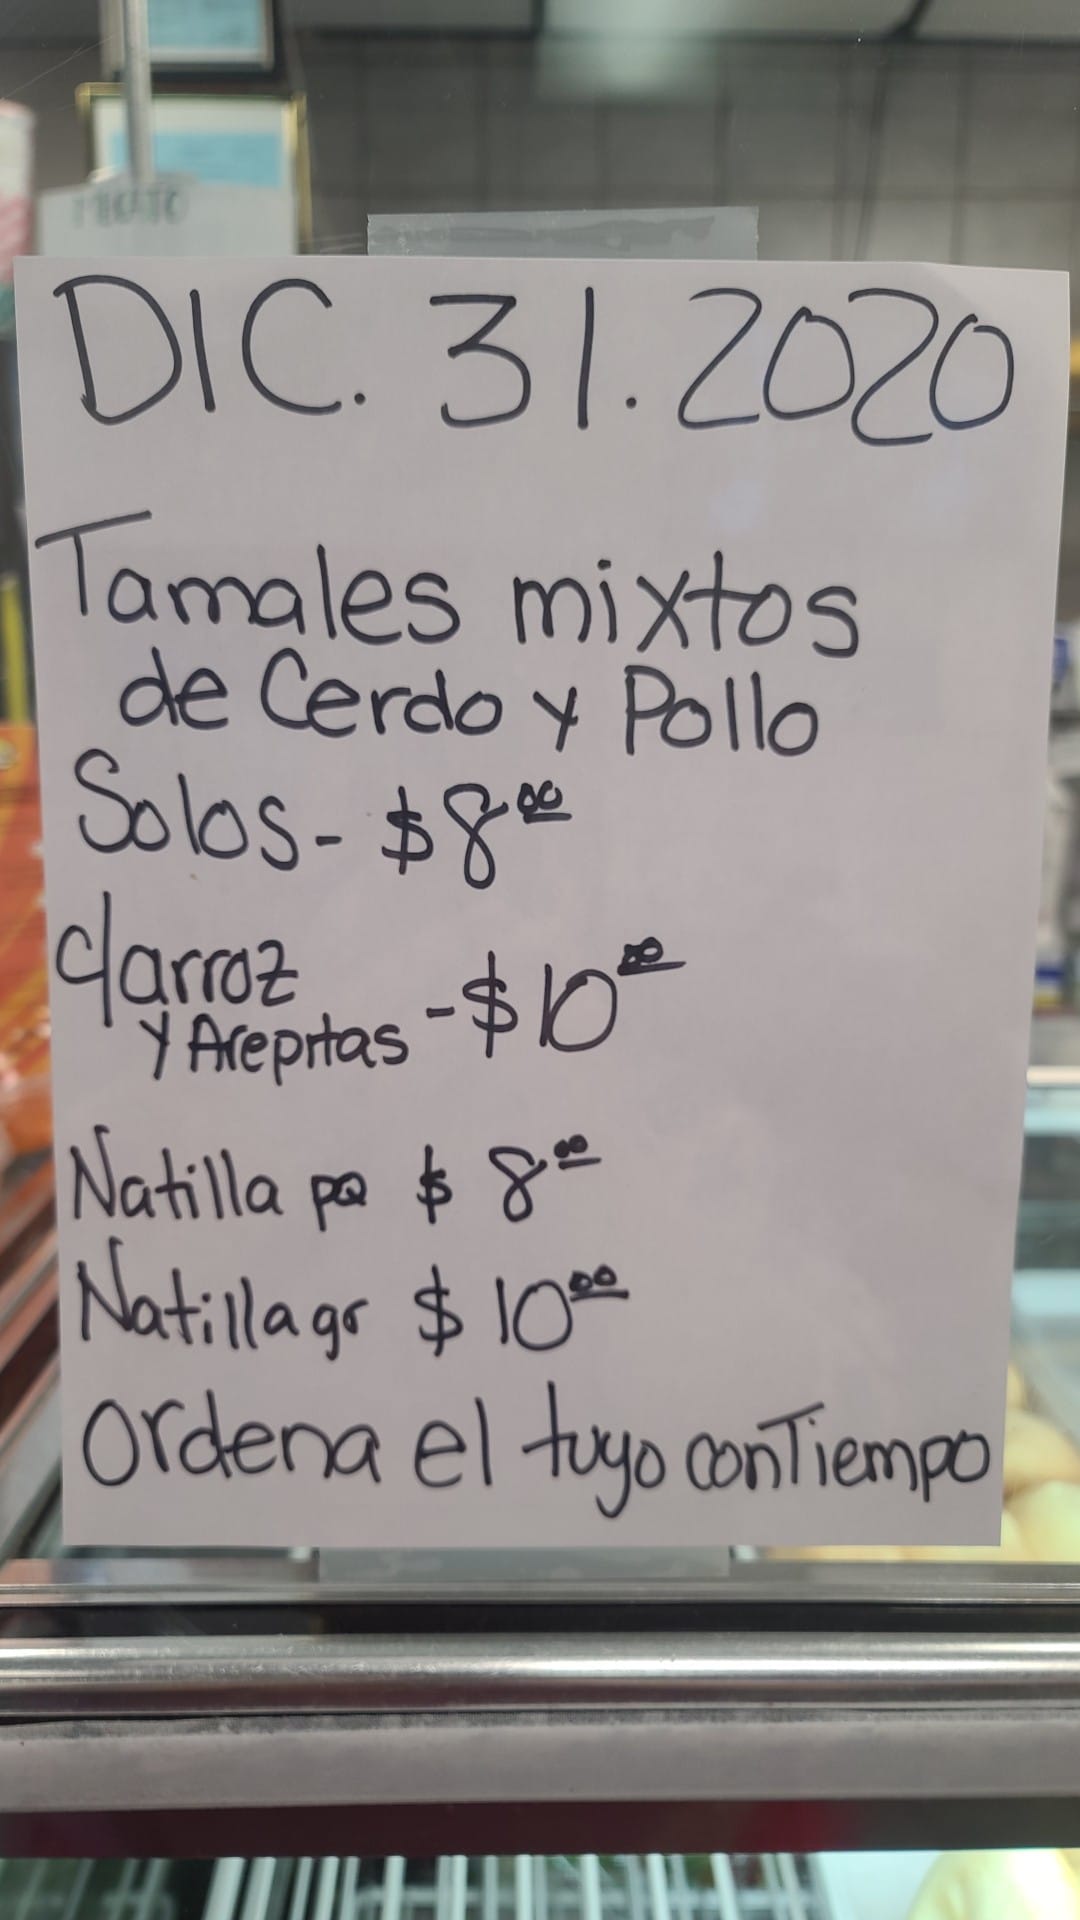 DIC. 31. 2020
Tamales mixtos
de Cerdo y Pollo
Solos - $8.00
c/arroz
y Arepitas - $10.00
Natilla pq $8.00
Natilla gr $10.00
Ordena el tuyo con Tiempo